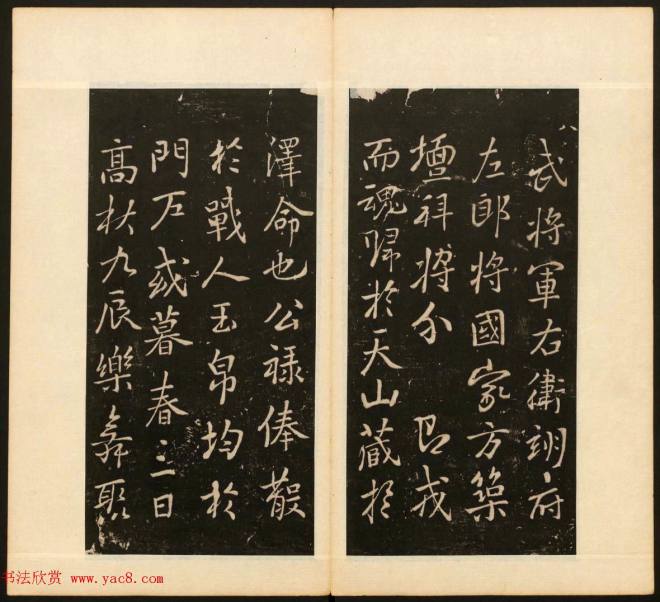 武将軍右衛翊府
左郎将國家方築
壇拜将分 戎
而魂歸於天山藏於
澤命也公禄俸散
於戰人玉帛均於
門
暮春三日
高秋九辰樂舞聚
书法欣赏 www.yac8.com